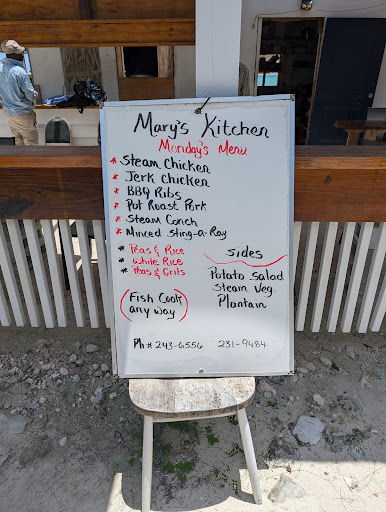 Mary's Kitchen
Monday's Menu
* Steam Chicken
* Jerk Chicken
* BBQ Ribs
* Pot Roast Pork
* Steam Conch
* Minced Sting-a-Ray
* Peas & Rice
* White Rice
* Peas & Grits
(Fish Cook any way)
Sides
Potato Salad
Steam Veg.
Plantain
Ph # 243-6556 231-9484